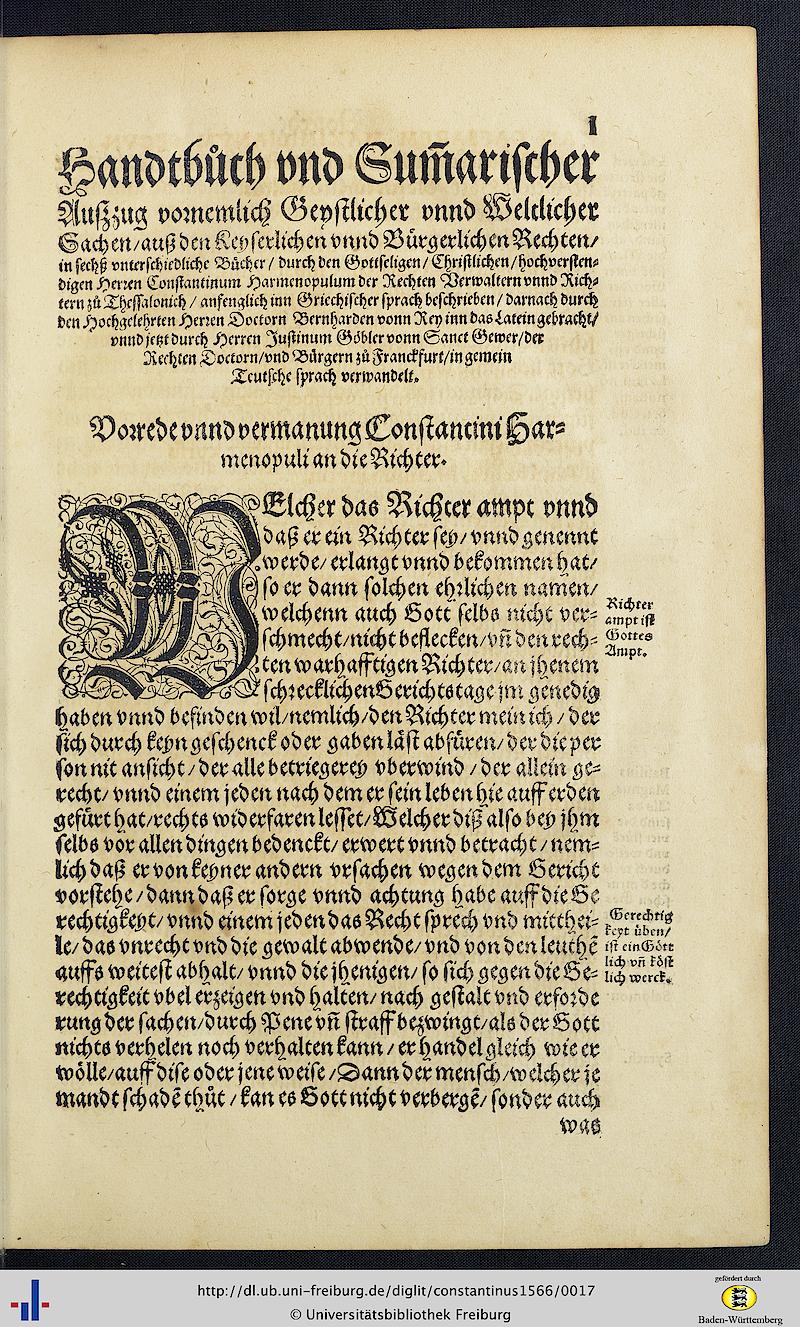 I
Handtbůch vnd Sum̃arischer
Auszzug vornemlich Geystlicher vnnd Weltlicher
Sachen/auß den Keyserlichen vnnd Bürgerlichen Rechten/
in sechß vnterschiedliche Bücher/ durch den Gottseligen/ Christlichen/ hochversten⸗
digen Herren Constantinum Harmenopulum der Rechten Verwaltern vnnd Rich⸗
tern zů Thessalonich/ anfenglich inn Griechischer sprach beschrieben/ darnach durch
den Hochgelehrten Herren Doctorn Bernharden vonn Rey inn das Latein gebracht/
vnnd jetzt durch Herren Justinum Göbler vonn Sanct Gewer/der
Rechten Doctorn/vnd Bürgern zů Franckfurt/in gemein
Teutsche sprach verwandelt.
Vorrede vnnd vermanung Constantini Har⸗
menopuli an die Richter.
WElcher das Richter ampt vnnd
daß er ein Richter sey/ vnnd genennt
werde/ erlangt vnnd bekommen hat/
so er dann solchen ehrlichen namen/
welchenn auch Gott selbs nicht ver⸗
schmecht/nicht beflecken/vñ den rech⸗
ten warhafftigen Richter/an jhenem
schrecklichen Gerichtstage jm genedig
Richter
ampt ist
Gottes
Ampt.
haben vnnd befinden wil/nemlich/den Richter mein ich/ der
sich durch keyn geschenck oder gaben läst abfüren/ der die per
son nit ansicht/ der alle betriegerey vberwind/ der allein ge⸗
recht/ vnnd einem jeden nach dem er sein leben hie auff erden
gefürt hat/rechts widerfaren lesset/Welcher diß also bey jhm
selbs vor allen dingen bedenckt/ erwert vnnd betracht/ nem⸗
lich daß er von keyner andern vrsachen wegen dem Gericht
vorstehe/ dann daß er sorge vnnd achtung habe auff die Ge
rechtigkeyt/ vnnd einem jeden das Recht sprech vnd mitthei⸗
le/ das vnrecht vnd die gewalt abwende/ vnd von den leuthẽ
auffs weitest abhalt/ vnnd die jhenigen/ so sich gegen die Ge⸗
rechtigkeit vbel erzeigen vnd halten/ nach gestalt vnd erforde
rung der sachen/durch Pene vñ straff bezwingt/als der Gott
nichts verhelen noch verhalten kann/ er handel gleich wie er
wölle/auff dise oder jene weise/Dann der mensch/welcher je
mandt schadẽ thůt/ kan es Gott nicht verbergẽ/ sonder auch
was
Gerechtig
keyt üben/
ist ein Gött
lich vñ köst
lich werck.
http://dl.ub.uni-freiburg.de/diglit/constantinus1566/0017
© Universitätsbibliothek Freiburg
gefördert durch
Baden-Württemberg